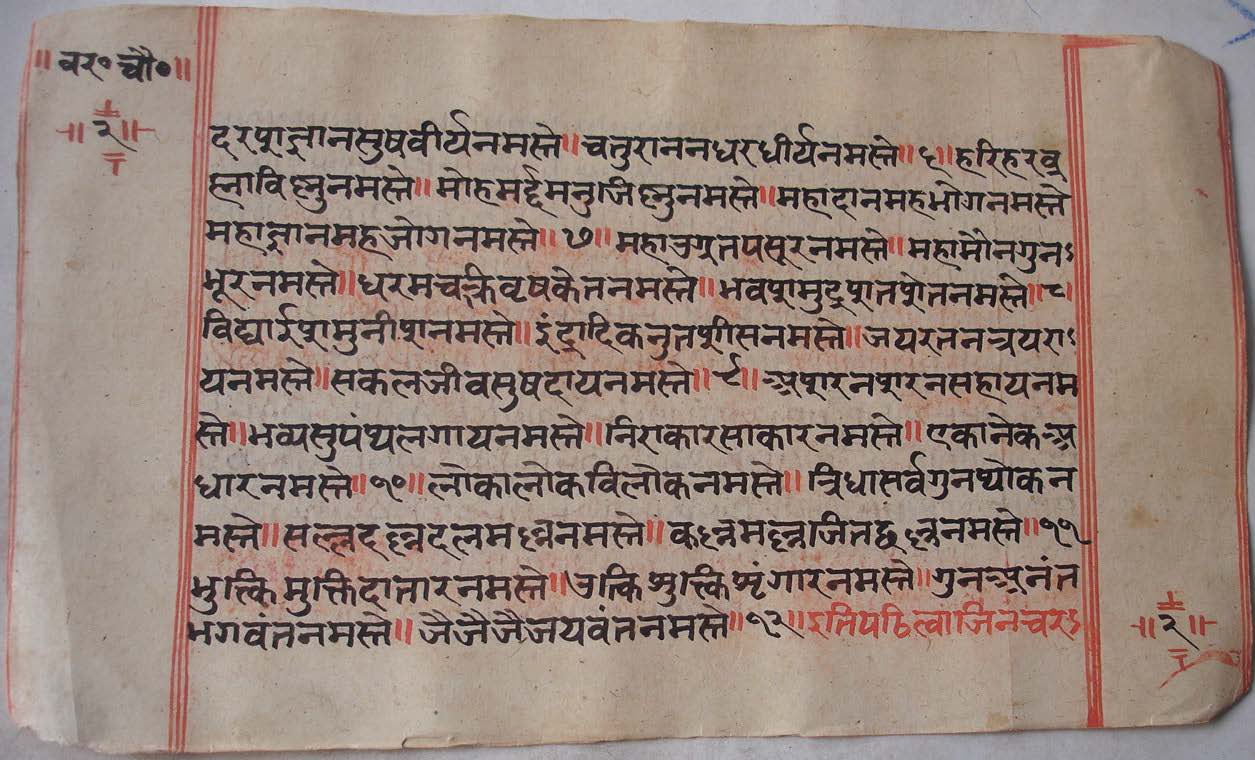 ॥ वर॰ चौ॰ ॥
॥ २ ॥
दरषाज्ञानसुषवीर्यनमस्ते ॥ चतुराननधरधीर्यनमस्ते ॥ ६ ॥ हरिहरव्र
ह्माविष्नुनमस्ते ॥ मोहमर्द्दमनुजिष्नुनमस्ते ॥ महादानमहभोगनमस्ते
महाज्ञानमहजोगनमस्ते ॥ ७ ॥ महाउग्रतपसूरनमस्ते ॥ महामौनगुनऽ
भूरनमस्ते ॥ धरमचक्रिवृषकेतनमस्ते ॥ भवसमुद्रसतसेतनमस्ते ॥ ८ ॥
नमस्ते ॥ इंद्रादिकनुत नमस्ते ॥ जयरतनत्रयराऽ
यनमस्ते ॥ सकलजीवसुषदायनमस्ते ॥ ९ ॥ असरनसरनसहायनम
स्ते ॥ भव्यसुपंथलगायनमस्ते ॥ निराकारसाकारनमस्ते ॥ एकानेकअ
धारनमस्ते ॥ १० ॥ लोकालोकविलोकनमस्ते ॥ त्रिधासर्वगुनथोकन
मस्ते ॥ नमस्ते ॥ नमस्ते ॥ ११
भुक्तिमुक्तिदातारनमस्ते ॥ नमस्ते ॥ गुनअनंत
भगवंतनमस्ते ॥ जैजैजैजयवंतनमस्ते ॥ १२ ॥ इतिपठित्वाजिनचरऽ
॥ २ ॥